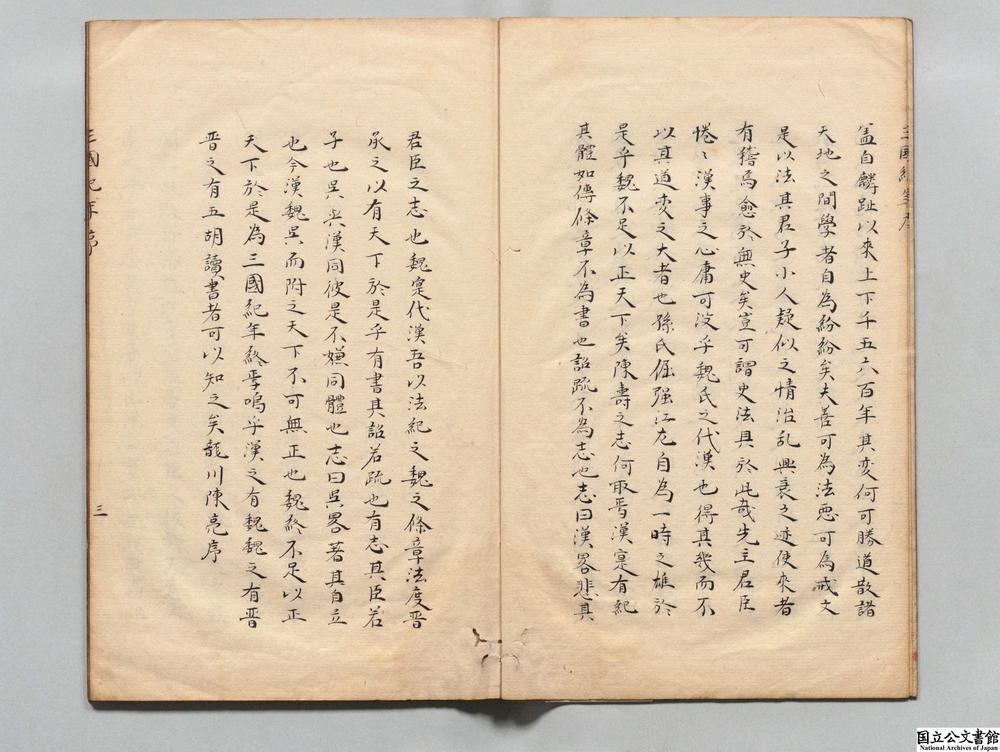 三國紀年序
盖自麟趾以來上下千五六百年其変何可勝道散諸
天地之間學者自為紛紛矣夫善可為法悪可為戒文
是以法其君子小人疑似之情治乱興衰之迹使來者
有稽焉愈於無史矣豈可謂史法具於此哉先主君臣
惓〻漢事之心庸可没乎魏氏之代漢也得其幾而不
以其道変之大者也孫氏倔强江左自為一時之雄於
是乎魏不足以正天下矣陳壽之志何取焉漢寔有紀
其體如傳條章不為書也詔疏不為志也志曰漢畧悲其
君臣之志也魏寔代漢吾以法紀之魏之條章法度晋
承之以有天下於是乎有書其詔若疏也有志其臣若
子也吳与漢同彼是不嫌同體也志曰吳畧著其自立
也今漢魏吳而附之天下不可無正也魏終不足以正
天下於是為三國紀年終焉嗚乎漢之有魏魏之有晋
晋之有五胡讀書者可以知之矣龍川陳亮序
三國紀年序
三
国立公文書館
National Archives of Japan